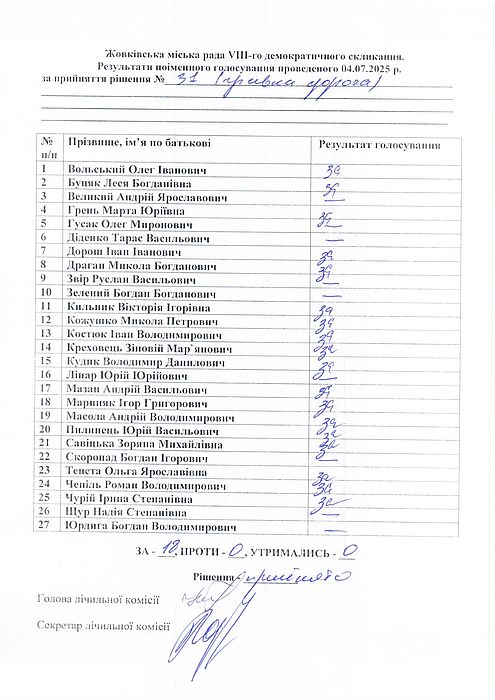 Жовківська міська рада VIII-го демократичного скликання.
Результати поіменного голосування проведеного 04.07.2025 р.
за прийняття рішення № 31 (гравка дорога)
№ п/п Прізвище, ім’я по батькові Результат голосування
1 Вольський Олег Іванович за
2 Буняк Леся Богданівна за
3 Великий Андрій Ярославович —
4 Грень Марта Юріївна
5 Гусак Олег Миронович за
6 Діденко Тарас Васильович —
7 Дорош Іван Іванович
8 Драган Микола Богданович за
9 Звір Руслан Васильович за
10 Зелений Богдан Богданович —
11 Кильник Вікторія Ігорівна за
12 Кожушко Микола Петрович за
13 Костюк Іван Володимирович за
14 Креховець Зіновій Мар`янович за
15 Кудик Володимир Данилович за
16 Лінар Юрій Юрійович за
17 Мазан Андрій Васильович за
18 Мариняк Ігор Григорович за
19 Масола Андрій Володимирович
20 Пилипець Юрій Васильович за
21 Савіцька Зоряна Михайлівна за
22 Скоропад Богдан Ігорович
23 Тенета Ольга Ярославівна
24 Чепіль Роман Володимирович за
25 Чурій Ірина Степанівна за
26 Щур Надія Степанівна —
27 Юрдига Богдан Володимирович —
ЗА - 18, ПРОТИ - 0, УТРИМАЛИСЬ - 0
Рішення прийнято
Голова лічильної комісії
Секретар лічильної комісії